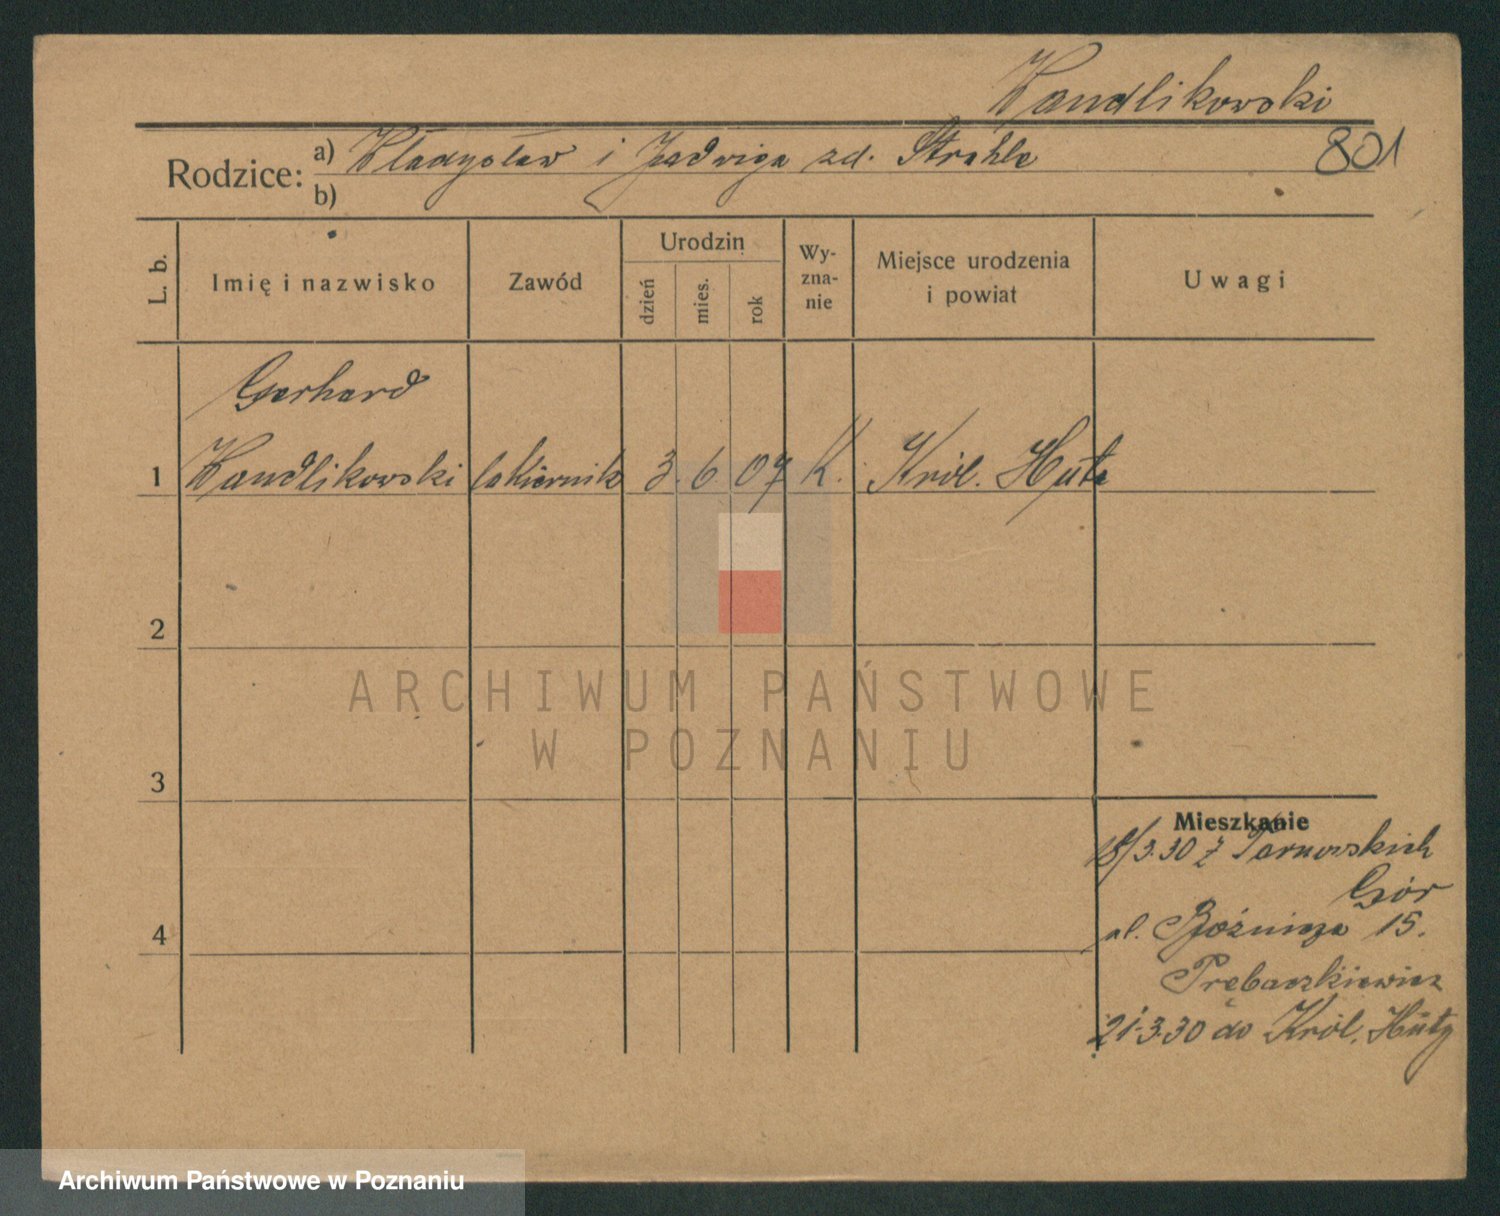 Kandlikowski
801
Rodzice: a) Władysław i Jadwiga zd. Strahle
b)
L. b.
Imię i nazwisko
Zawód
Urodzin
dzień
mies.
rok
Wy-
zna-
nie
Miejsce urodzenia
i powiat
Uwagi
Gerhard
1 Kandlikowski lakiernik 3. 6. 07 K. Król. Huta
2
3
4
ARCHIWUM PAŃSTWOWE
W POZNANIU
Mieszkanie
18/3.30 z Tarnowskich
Gór
ul. Bóżnicza 15.
Prębaczkiewicz
21.3.30 do Król. Huty
Archiwum Państwowe w Poznaniu